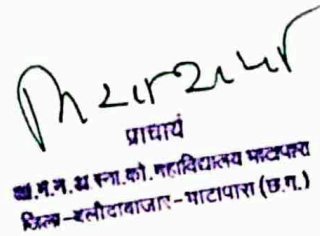 प्राचार्य
शा.ग.न.अ.स्ना.को.महाविद्यालय भाटापारा
जिला-बलौदाबाजार-भाटापारा (छ.ग.)